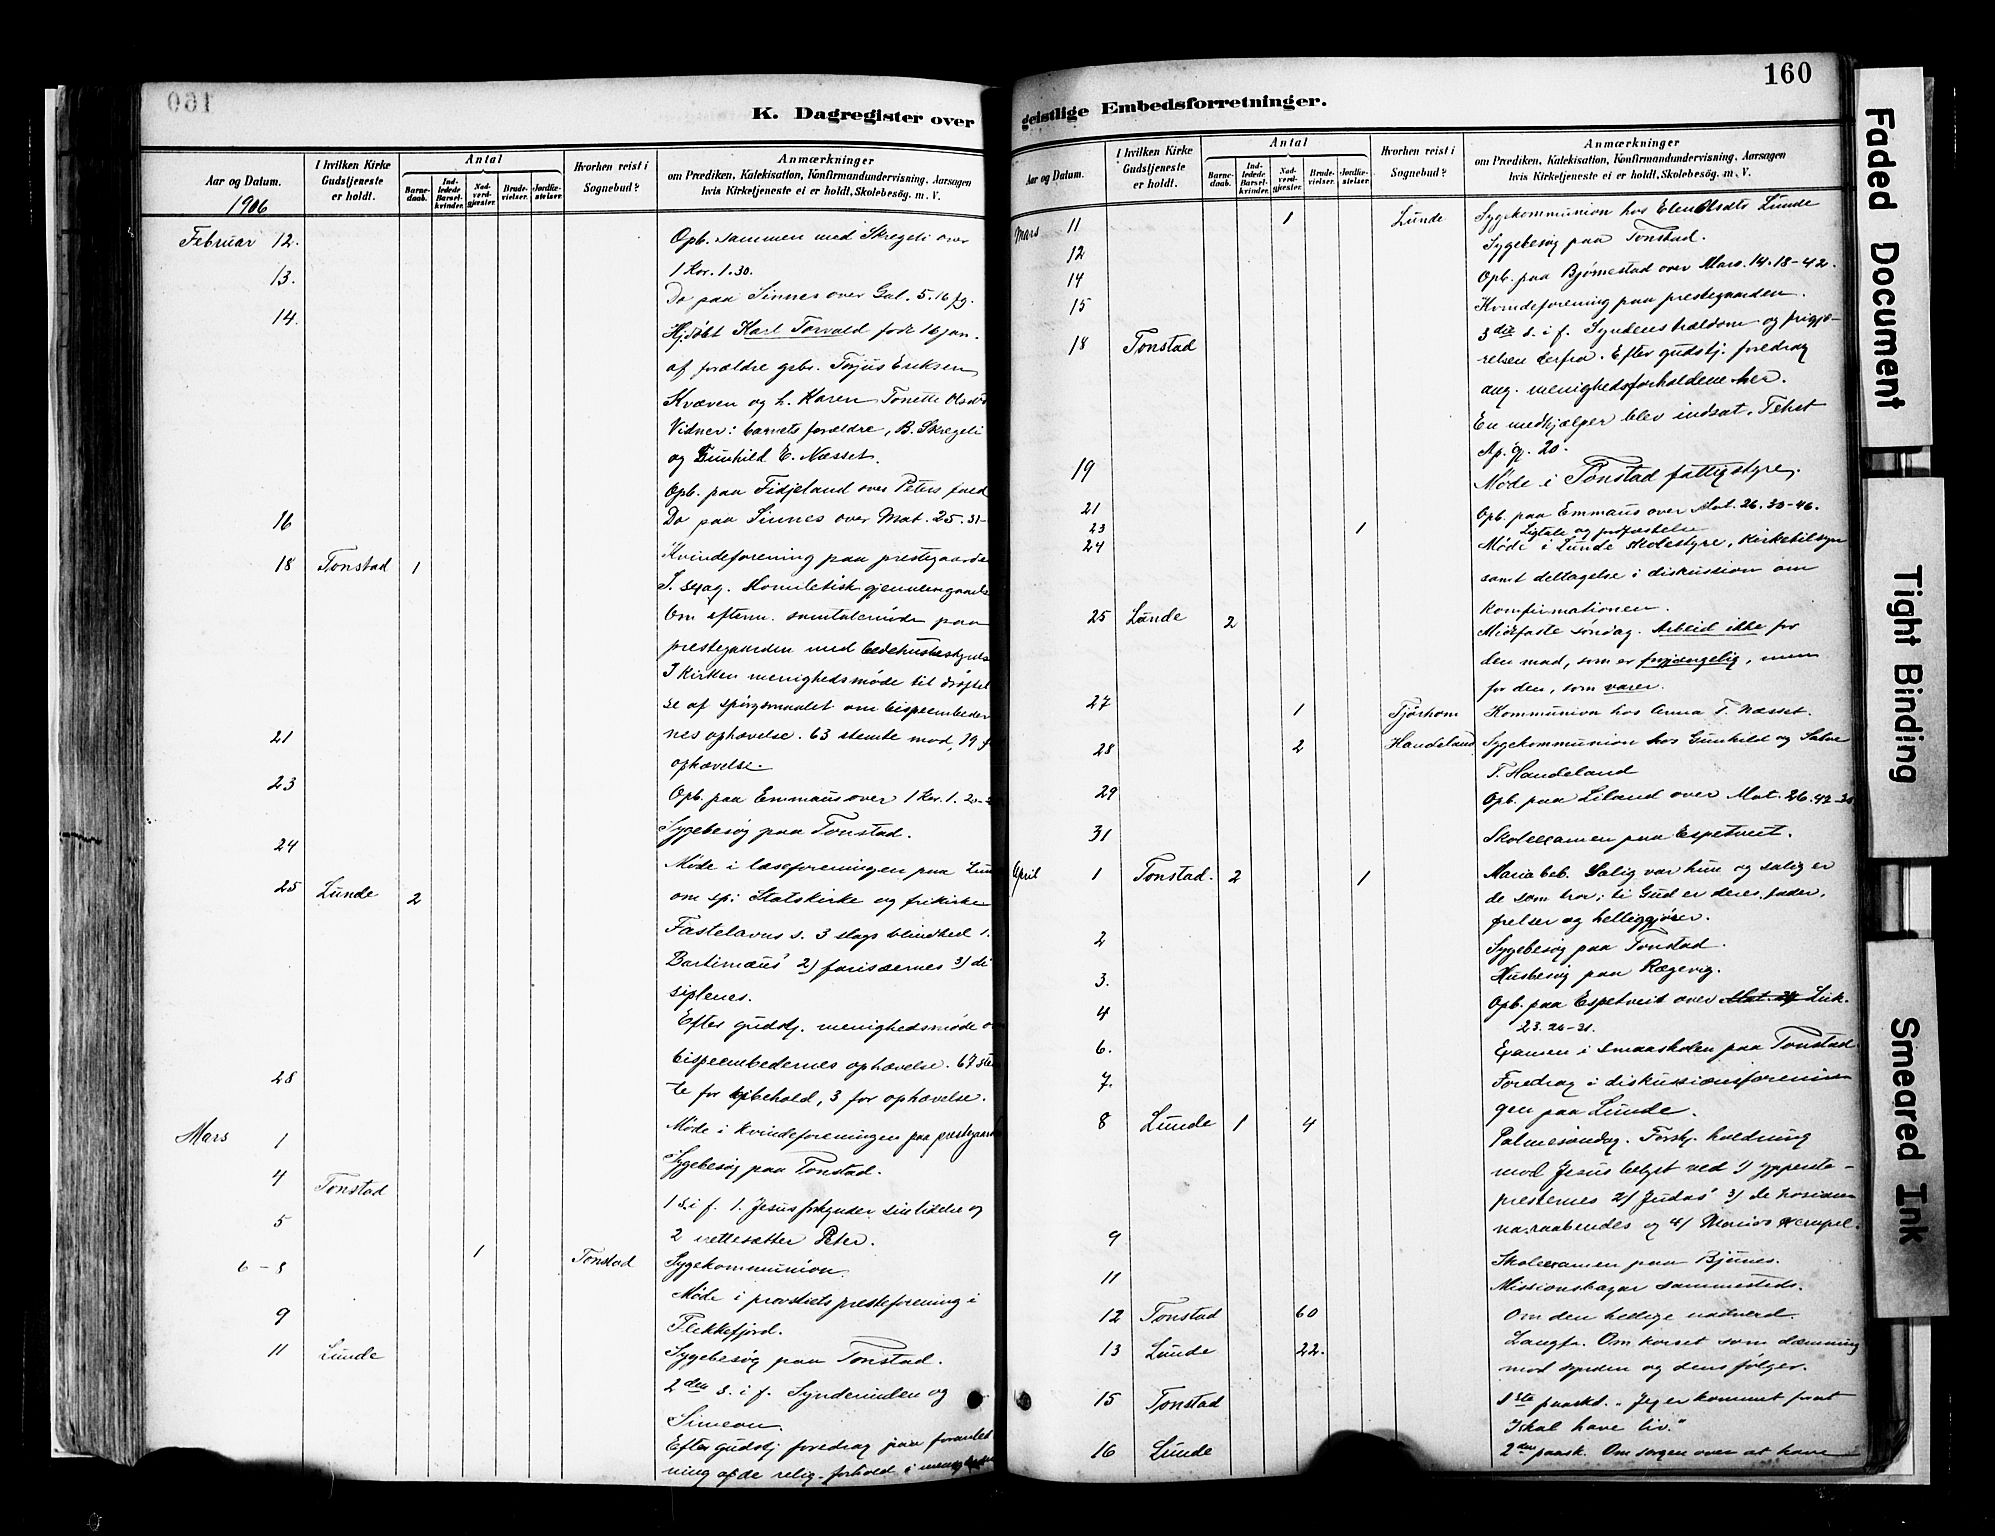 160
K. Dagregister over
Aar og Datum.
1906
I hvilken Kirke Gudstjeneste er holdt.
Antal
Barne-daab.
Ind-ledede Barsel-kvinder.
Nad-verd-gjæster.
Brude-vielser.
Jordfæ-stelser.
Hvorhen reist i Sognebud?
Anmærkninger
om Prædiken, Katekisation, Konfirmandundervisning, Aarsagen
hvis Kirketjeneste ei er holdt, Skolebesøg. m. V.
Februar 12. Opb. sammen med Skregeli over
1 Kor. 1. 30.
13. Do paa Sinnes over Gal. 5. 16 fg.
14. Hjdøbt Karl Torvald født 16 jan.
af forældre gbr. Torjus Eriksen
Kvæven og h. Karen Tonette Olsdt
Vidner: barnets forældre, B. Skregeli
og Gunhild E. Næsset.
Opb. paa Fidjeland over Peters
16 Do paa Sinnes over Mat. 25. 31-
Kvindeforening paa prestegaarden
18 Tonstad 1 S. sexag. Homiletisk
Om efterm. samtalemøde paa
prestegaarden med bedehusbestyrel
I kirken menighedsmøde til drøftel
se af spørgsmaalet om bispeembeder
nes ophævelse. 63 stemte mod, 19 f
ophævelse.
21
23 Opb. paa Emmaus over 1 Kor. 1. 20-
Sygebesøg paa Tonstad.
24 Møde i læseforeningen paa Lun
om sp: Statskirke og frikirke
25 Lunde 2 Fastelavns s. 3 slags blindhed 1.
Bartimæus' 2) farisæernes 3) di
siplenes.
Efter gudstj. menighedsmøde om
bispeembedernes ophævelse. 67 stem
te for bibehold, 3 for ophævelse.
28 Møde i kvindeforeningen paa prestegaarden
Mars 1 Sygebesøg paa Tonstad.
4 Tonstad 1 s. i f. 1. Jesus forkynder sin lidelse og
2 rettesætter Peter.
5 1 Tonstad Sygekommunion
6-8 Møde i provstiets presteforening i
Flekkefjord.
9 Sygebesøg paa Tonstad.
11 Lunde 2den s. i f. Synderinden og
Simeon
Efter gudstj foredrag paa foranled
ning af de relig. forhold i menigheden
160
geistlige Embedsforretninger.
Aar og Datum.
I hvilken Kirke Gudstjeneste er holdt.
Antal
Barne-daab.
Ind-ledede Barsel-kvinder.
Nad-verd-gjæster.
Brude-vielser.
Jordfæ-stelser.
Hvorhen reist i Sognebud?
Anmærkninger
om Prædiken, Katekisation, Konfirmandundervisning, Aarsagen
hvis Kirketjeneste ei er holdt, Skolebesøg. m. V.
Mars 11 1 Lunde Sygekommunion hos Elen Olsdts Lunde
12 Sygebesøg paa Tonstad.
14 Opb. paa Bjørnestad over Marc. 14. 18-42.
15 Kvindeforening paa prestegaarden.
18 Tonstad 3die s. i f. Syndens trældom og frigjø-
relsen derfra. Efter gudstj. foredrag
ang. menighedsforholdene her.
En medhjælper blev indsat. Tekst
Ap. gj. 20.
19 Møde i Tonstad fattigstyre.
21 Opb. paa Emmaus over Mat. 26. 33-46.
23 1 Ligtale og jordfæstelse
24 Møde i Lunde skolestyre, kirketilsyn
samt deltagelse i diskussion om
konfirmationen.
25 Lunde 2 Midfaste søndag. Arbeid ikke for
den mad, som er forgjængelig, men
for den, som varer.
27 1 Tjørhom Kommunion hos Anna T. Næsset.
28 2 Handeland Sygekommunion hos Gunhild og Salve
T. Handeland
29 Opb. paa Liland over Mat. 26. 42-
31 Skoleexamen paa Espetveit.
April 1 Tonstad. 2 1 Maria beb. Salig var hun og salig er
de som tror; ti Gud er deres fader,
frelser og helliggjører.
2 Sygebesøg paa Tonstad.
3. Husbesøg paa Rægevig.
4 Opb. paa Espetveit over Luk.
23. 26-31.
6. Examen i smaaskolen paa Tonstad
7. Foredrag i diskussionsforenin
gen paa Lunde.
8 Lunde 1 4 Palmesøndag. Forskj. holdning
mod Jesus belyst ved 1) ypperste-
presternes 2) Judas' 3) de hosianna
raabendes og 4) Marias exempel.
9 Skoleexamen paa Bjunes.
11 Missionsbazar sammesteds.
12 Tonstad 60 Om den hellige nadverd.
13 Lunde 22. Langfr. Om korset som dæmning
mod synden og dens følger.
15 Tonstad 1ste paaskd. "Jeg er kommet forat
I skal have liv."
16 Lunde 2den paask. Om sorgen over at have
Faded Document
Tight Binding
Smeared Ink